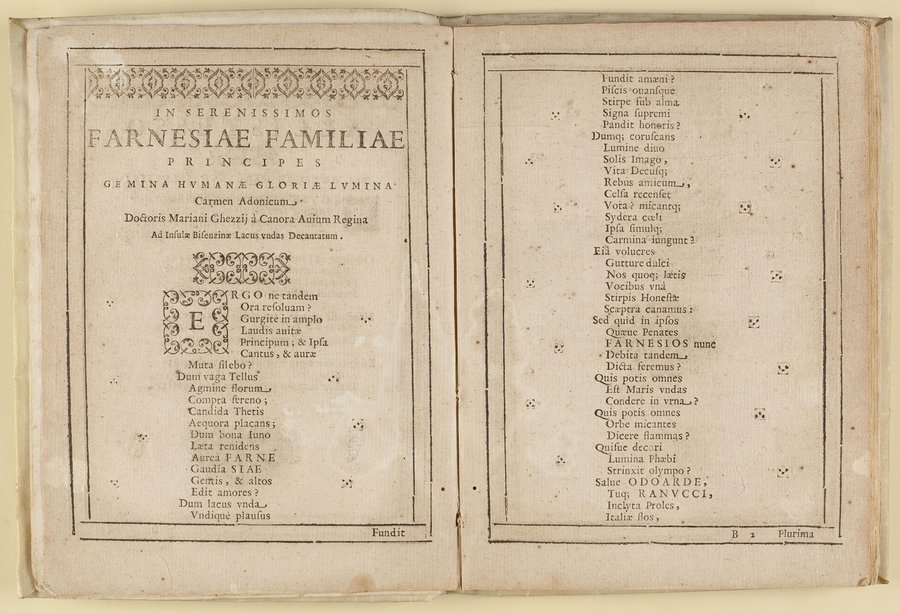 IN SERENISSIMOS
FARNESIAE FAMILIAE
PRINCIPES
GEMINA HVMANÆ GLORIÆ LVMINA
Carmen Adonicum.
Doctoris Mariani Ghezzij à Canora Auium Regina
Ad Insulæ Bisenzinæ Lacus vndas Decantatum.
ERGO ne tandem
Ora resoluam?
Gurgite in amplo
Laudis auitæ
Principum; & Ipsa
Cantus, & auræ
Muta silebo?
Dum vaga Tellus
Agmine florum
Compta sereno;
Candida Thetis
Aequora placans;
Dum bona Iuno
Læta renidens
Aurea FARNE
Gaudia SIAE
Gentis, & altos
Edit amores?
Dum lacus vnda
Vndiquè plausus
Fundit
Fundit amæni?
Piscis ouansque
Stirpe sub alma
Signa supremi
Pandit honoris?
Dumq; coruscans
Lumine diuo
Solis Imago,
Vita Decusq;
Rebus amicum,
Celsa recenset
Vota? micantq;
Sydera cœli
Ipsa simulq;
Carmina iungunt?
Eià volucres
Gutture dulci
Nos quoq; lætis
Vocibus vnà
Stirpis Honestæ
Scæptra canamus:
Sed quid in ipsos
Quæue Penates
FARNESIOS nunc
Debita tandem
Dicta feremus?
Quis potis omnes
Est Maris vndas
Condere in vrna?
Quis potis omnes
Orbe micantes
Dicere flammas?
Quisue decori
Lumina Phæbi
Strinxit olympo?
Salue ODOARDE,
Tuq; RANVCCI,
Inclyta Proles,
Italiæ flos,
B 2 Plurima